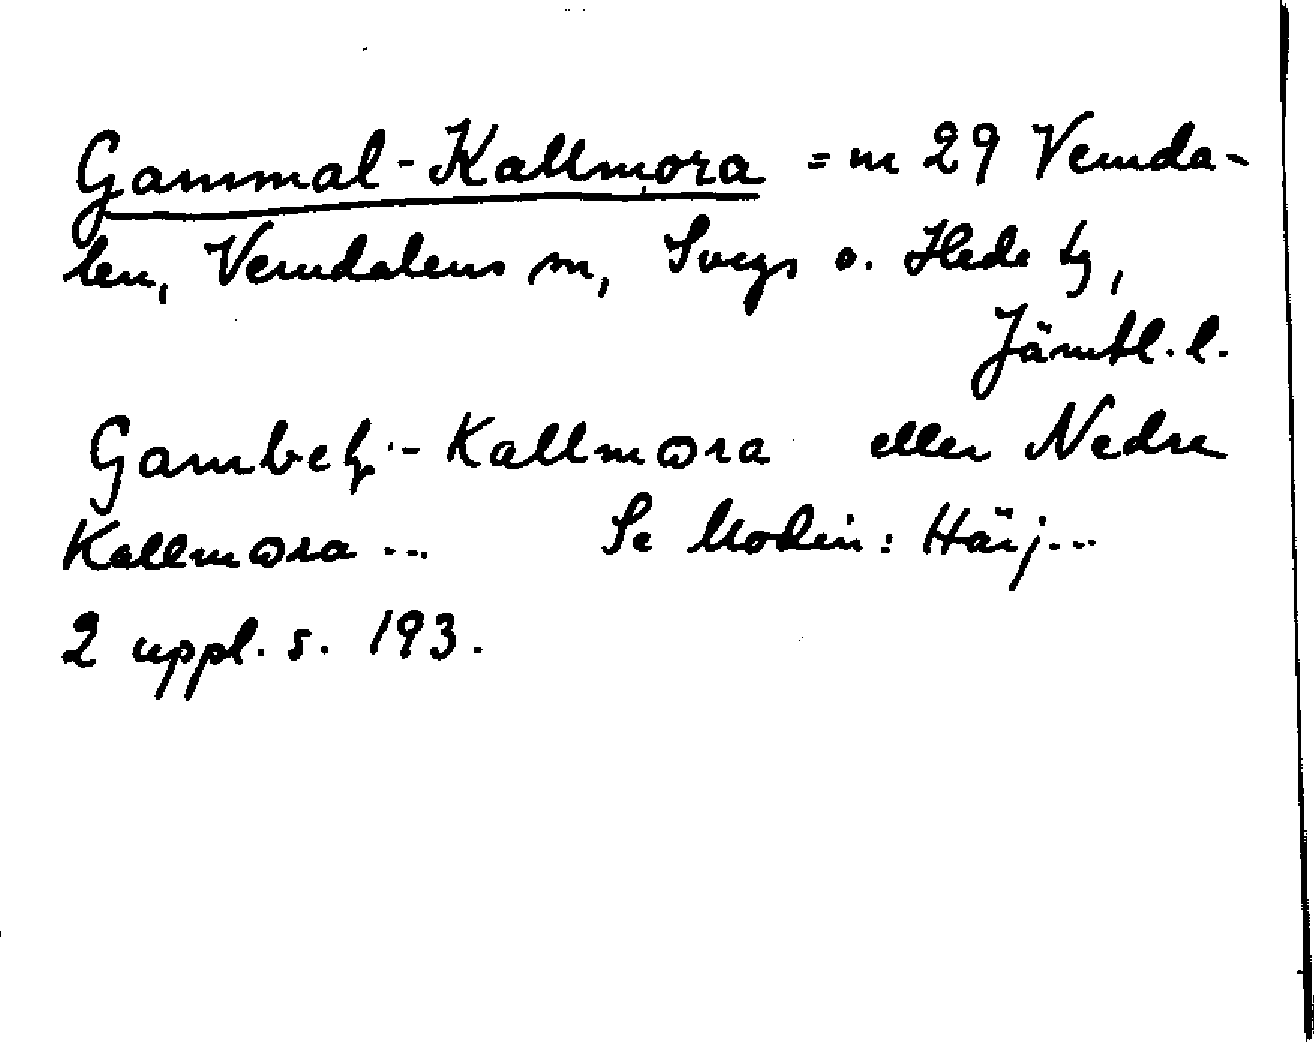 Gammal-Kallmora = m 29 Vemda-
len, Vemdalens sn, Svegs o. Hede tg,
Jämtl. l.
-Kallmora eller Nedre
Kallmora ... Se Modin: Härj...
2 uppl. s. 193.